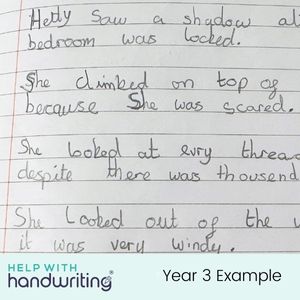 Hetty Saw a shadow
bedroom was locked.
She climbed on top of
because She was scared.
She looked at evry
despite there was
She Looked out of the
it was very windy.
HELP WITH
handwriting
Year 3 Example